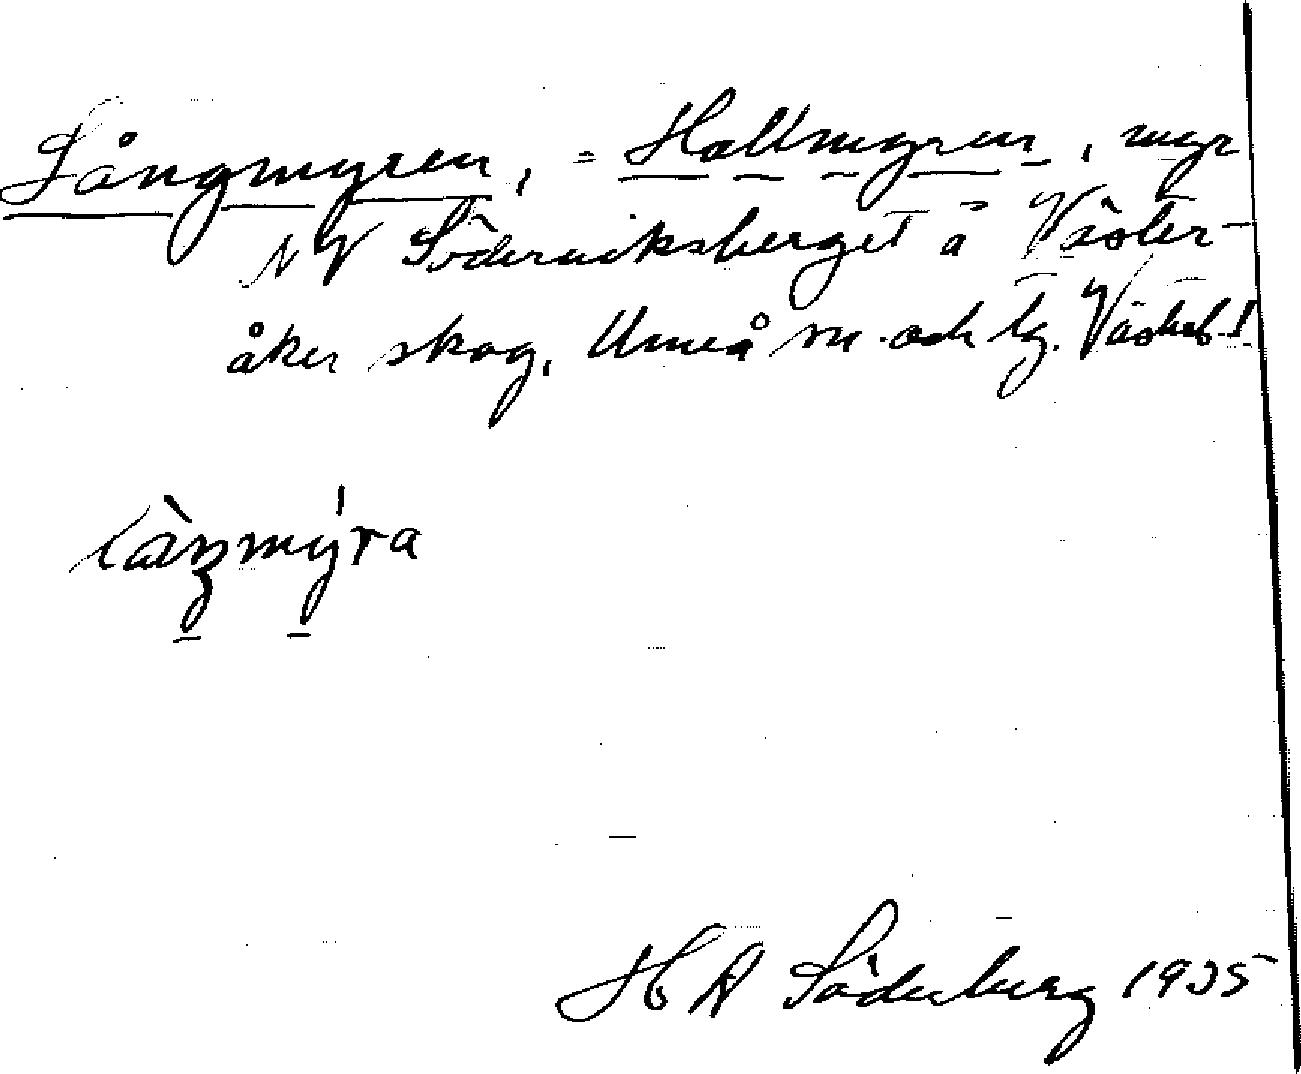 Långmyren, = Hallmyren, myr
NV Söderviksberget å Väster-
åker skog, Umeå sn och lg. Västerb. l.
làŋmýra
H A Söderberg 1935